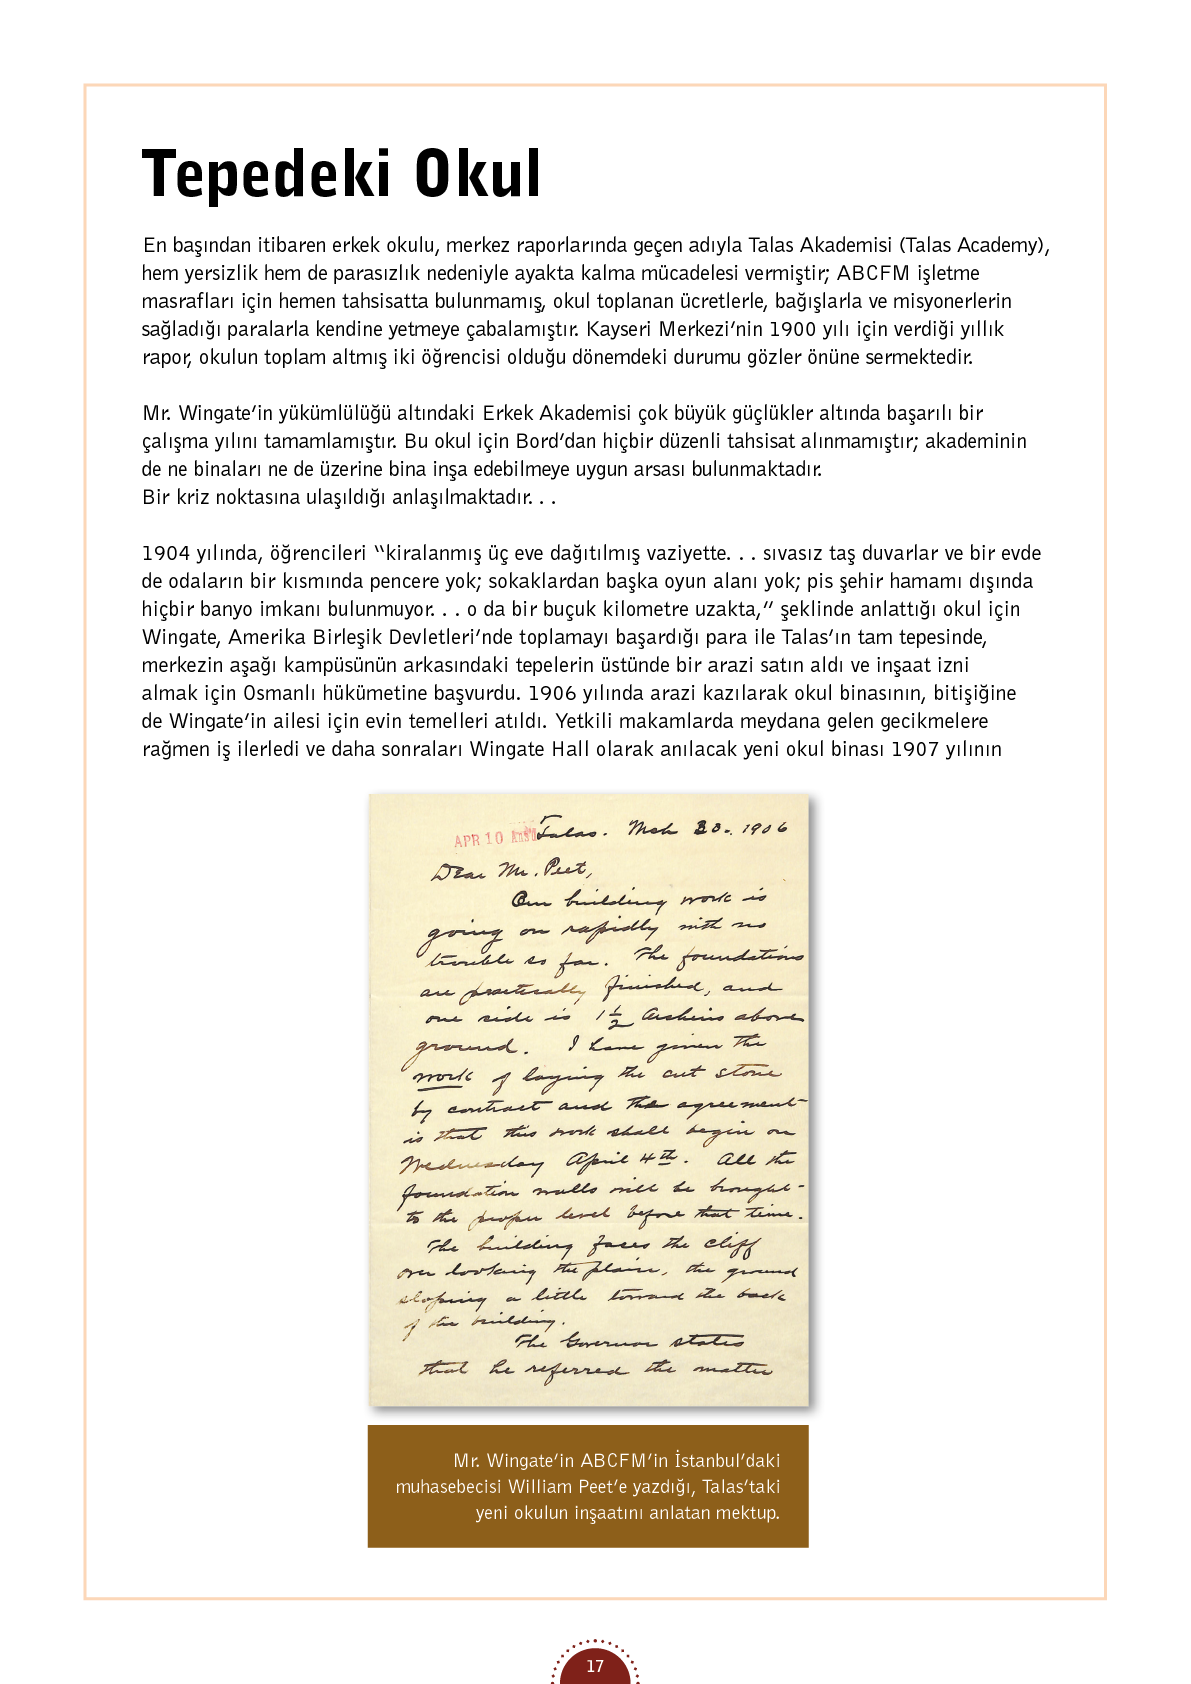 Tepedeki Okul
En başından itibaren erkek okulu, merkez raporlarında geçen adıyla Talas Akademisi (Talas Academy),
hem yersizlik hem de parasızlık nedeniyle ayakta kalma mücadelesi vermiştir; ABCFM işletme
masrafları için hemen tahsisatta bulunmamış, okul toplanan ücretlerle, bağışlarla ve misyonerlerin
sağladığı paralarla kendine yetmeye çabalamıştır. Kayseri Merkezi’nin 1900 yılı için verdiği yıllık
rapor, okulun toplam altmış iki öğrencisi olduğu dönemdeki durumu gözler önüne sermektedir.
Mr. Wingate’in yükümlülüğü altındaki Erkek Akademisi çok büyük güçlükler altında başarılı bir
çalışma yılını tamamlamıştır. Bu okul için Bord’dan hiçbir düzenli tahsisat alınmamıştır; akademinin
de ne binaları ne de üzerine bina inşa edebilmeye uygun arsası bulunmaktadır.
Bir kriz noktasına ulaşıldığı anlaşılmaktadır. . .
1904 yılında, öğrencileri “kiralanmış üç eve dağıtılmış vaziyette. . . sıvasız taş duvarlar ve bir evde
de odaların bir kısmında pencere yok; sokaklardan başka oyun alanı yok; pis şehir hamamı dışında
hiçbir banyo imkanı bulunmuyor. . . o da bir buçuk kilometre uzakta,” şeklinde anlattığı okul için
Wingate, Amerika Birleşik Devletleri’nde toplamayı başardığı para ile Talas’ın tam tepesinde,
merkezin aşağı kampüsünün arkasındaki tepelerin üstünde bir arazi satın aldı ve inşaat izni
almak için Osmanlı hükümetine başvurdu. 1906 yılında arazi kazılarak okul binasının, bitişiğine
de Wingate’in ailesi için evin temelleri atıldı. Yetkili makamlarda meydana gelen gecikmelere
rağmen iş ilerledi ve daha sonraları Wingate Hall olarak anılacak yeni okul binası 1907 yılının
APR 10 Talas. Mch 30. 1906
Dear Mr. Peet,
Our building work is
going on rapidly with no
trouble so far. The foundations
are practically finished, and
one side is 1 1/2 Arshins above
ground. I have given the
work of laying the cut stone
by contract and the agreement
is that this work shall begin on
Wednesday April 4th. All the
foundation walls will be brought
to the proper level before that time.
The building faces the cliff
over looking the plain, the ground
sloping a little toward the back
of the building.
The Governor states
that he referred the matter
Mr. Wingate’in ABCFM’in İstanbul’daki
muhasebecisi William Peet’e yazdığı, Talas’taki
yeni okulun inşaatını anlatan mektup.
17